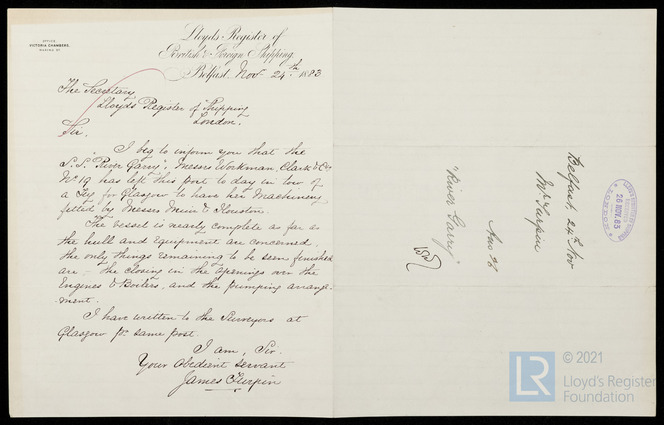 OFFICE
VICTORIA CHAMBERS,
Lloyd's Register of
British & Foreign Shipping,
Belfast, Nov 24th 1883
The Secretary
Lloyds Register of Shipping
London.
Sir,
I beg to inform you that the
S.S. "River Garry", Messrs Workman, Clark & Co
No 19 has left this port to day in tow of
a Tug for Glasgow to have her Machinery
fitted by Messrs Muir & Houston.
The vessel is nearly complete as far as
the hull and equipment are concerned,
the only things remaining to be seen finished
are - the closing in the openings over the
Engines & Boilers, and the pumping arrange-
ment.
I have written to the Surveyors at
Glasgow pr same post.
I am, Sir.
Your obedient servant
James Turpin
Belfast 24th Nov
Mr Turpin
Nov 26
"River Garry"
26 NOV. 83
LONDON
© 2021
LR
Lloyd's Register
Foundation